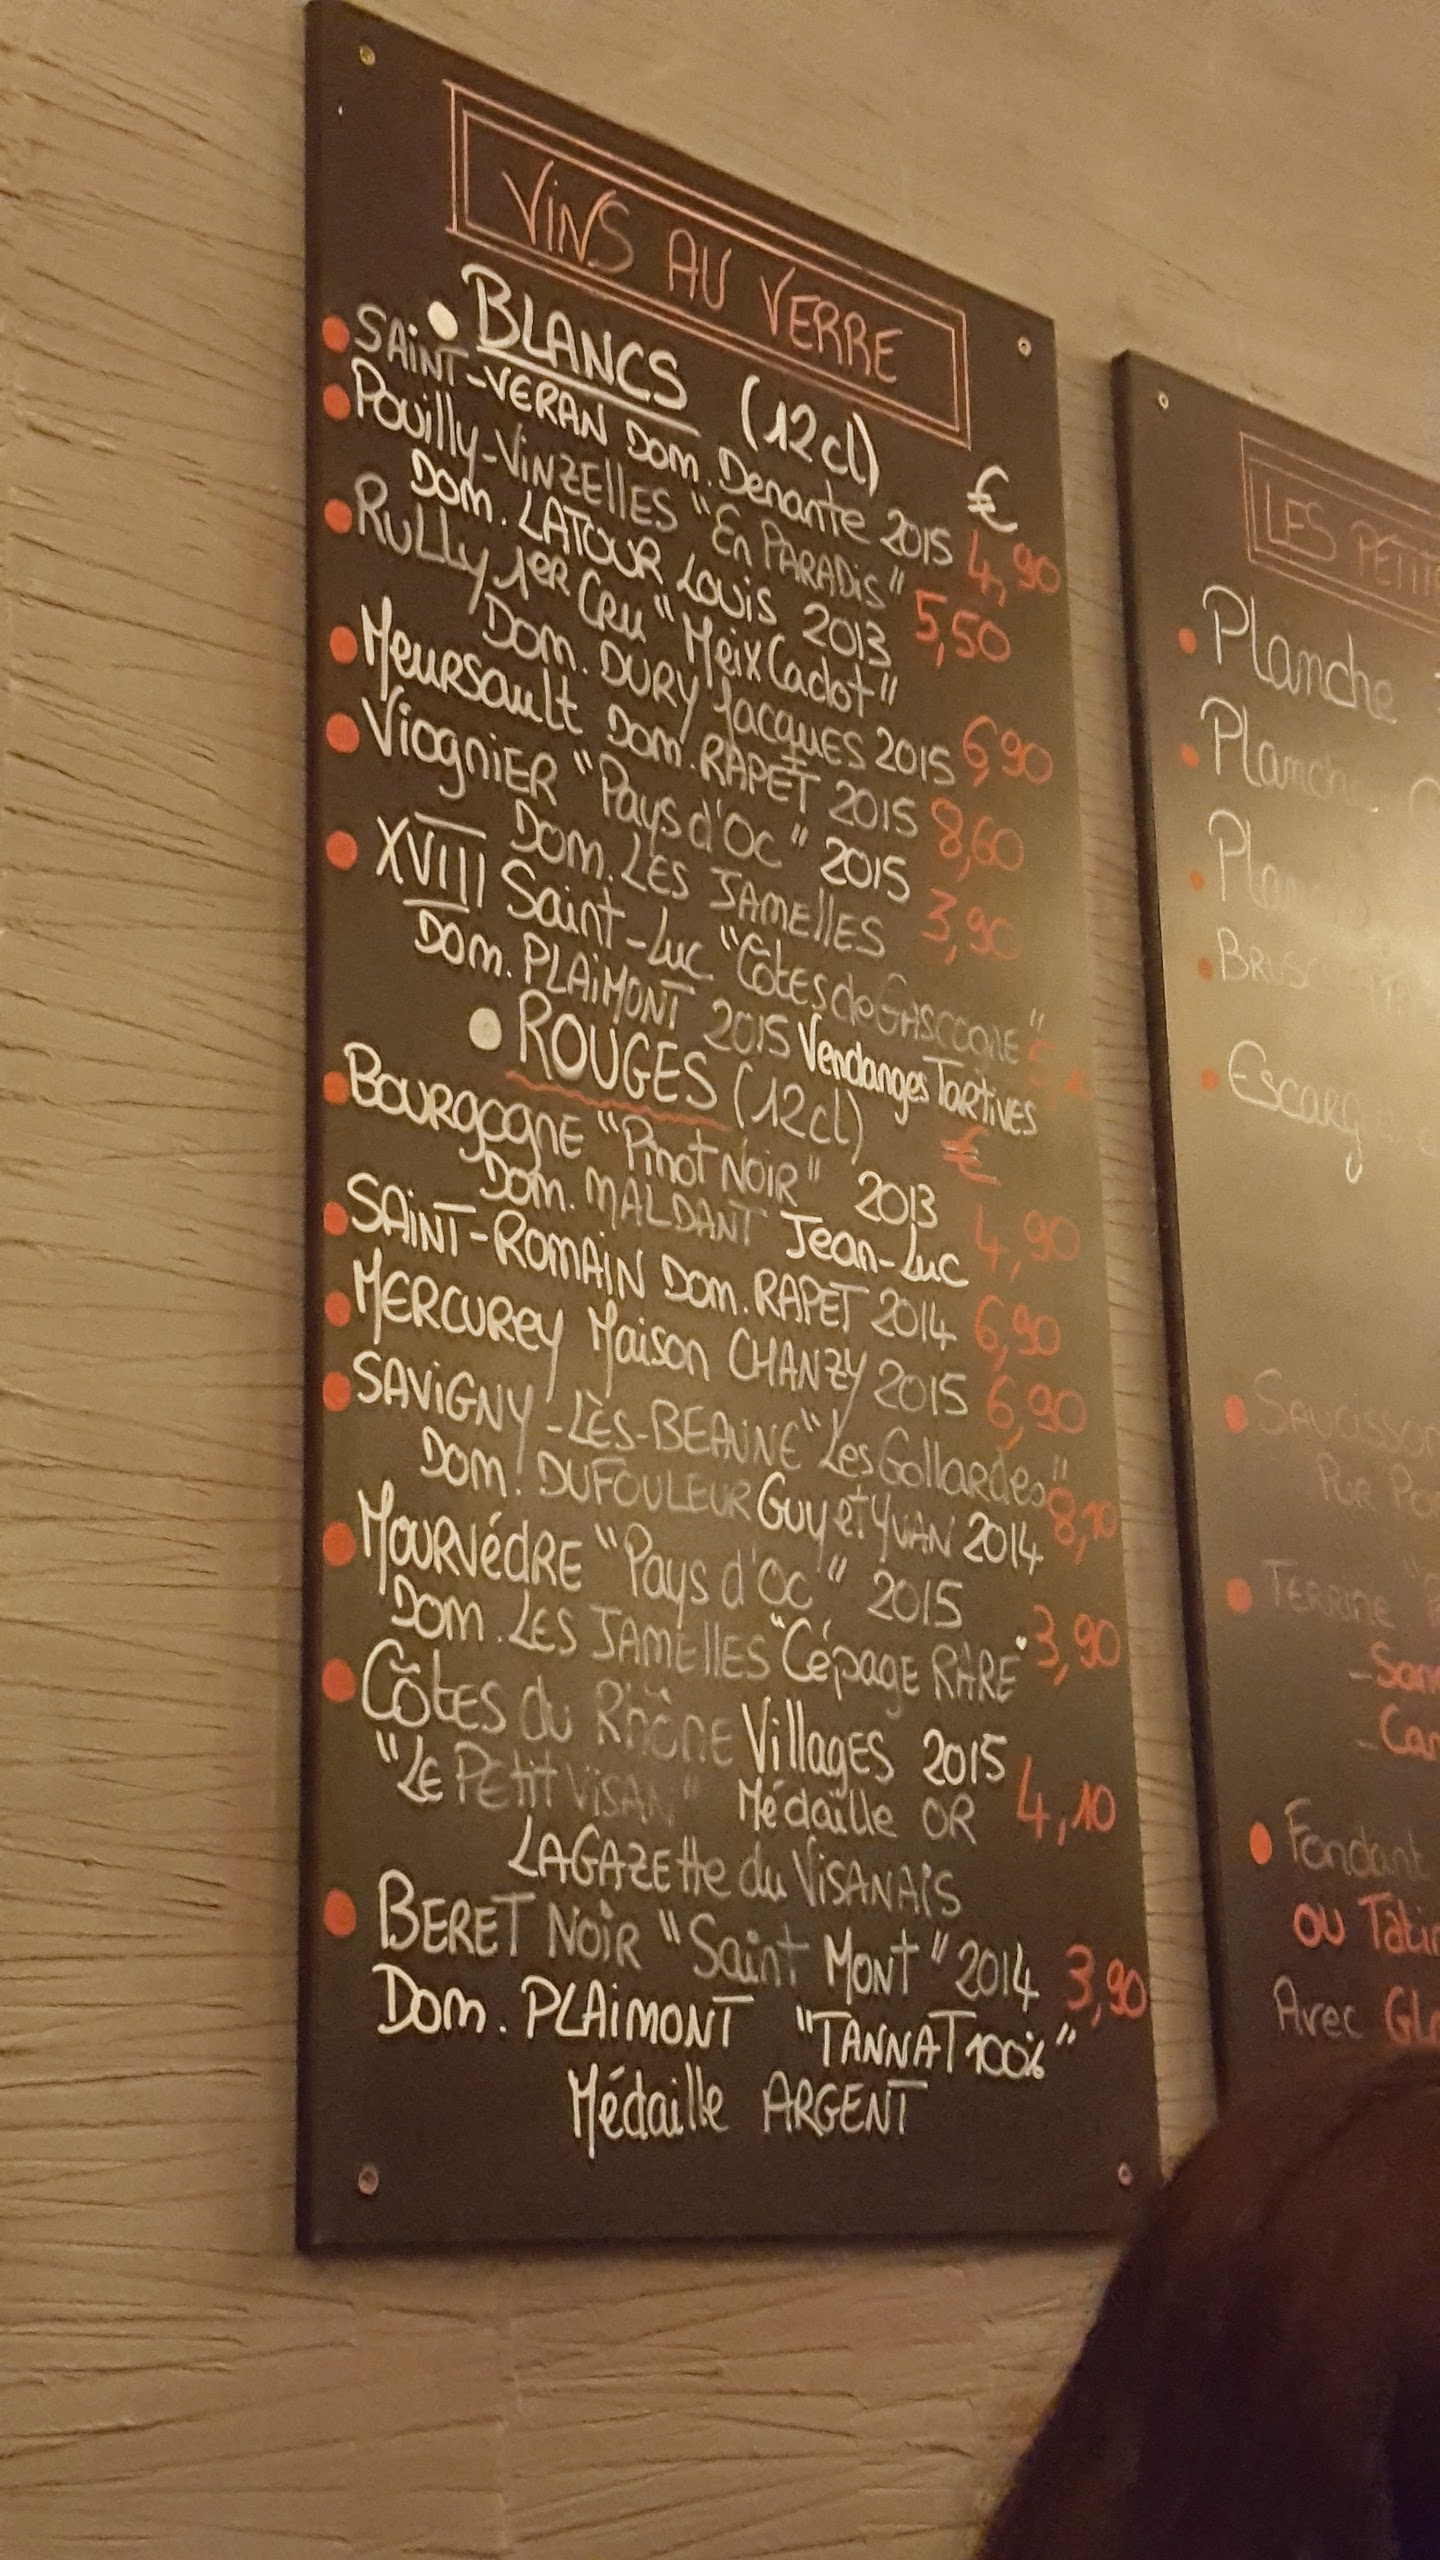 VINS AU VERRE
BLANCS (12cl) €
SAINT-VERAN DOM. Denante 2015 4,90
POUILLY-VINZELLES "En PARADIS"
DOM. LATOUR LOUIS 2013 5,50
RULLY 1er CRU "Meix Cadot"
DOM. DURY Jacques 2015 6,90
Meursault DOM. RAPET 2015 8,60
Viognier "Pays d'Oc" 2015
DOM. LES JAMELLES 3,90
XVIII Saint-Luc "Côtes de GASCOGNE"
DOM. PLAIMONT 2015 Vendanges Tartives
ROUGES (12cl) €
BOURGOGNE "Pinot NOIR" 2013
DOM. MALDANT Jean-Luc 4,90
SAINT-ROMAIN DOM. RAPET 2014 6,90
MERCUREY Maison CHANZY 2015 6,90
SAVIGNY-LÈS-BEAUNE "Les Gollardes"
DOM. DUFOULEUR GUY et YVAN 2014 8,10
MOURVÉDRE "Pays d'Oc" 2015
DOM. LES JAMELLES "Cépage RARE" 3,90
Côtes du Rhône Villages 2015
"LE PETIT VISAN" Médaille OR 4,10
LA GAZETTE du VISANAIS
BERET NOIR "Saint MONT" 2014 3,90
DOM. PLAIMONT "TANNAT 100%"
Médaille ARGENT
LES PETIT
Planche
Planche
Escarg
SAUCISSON
PUR
TERRINE
Fondant
OU
Avec